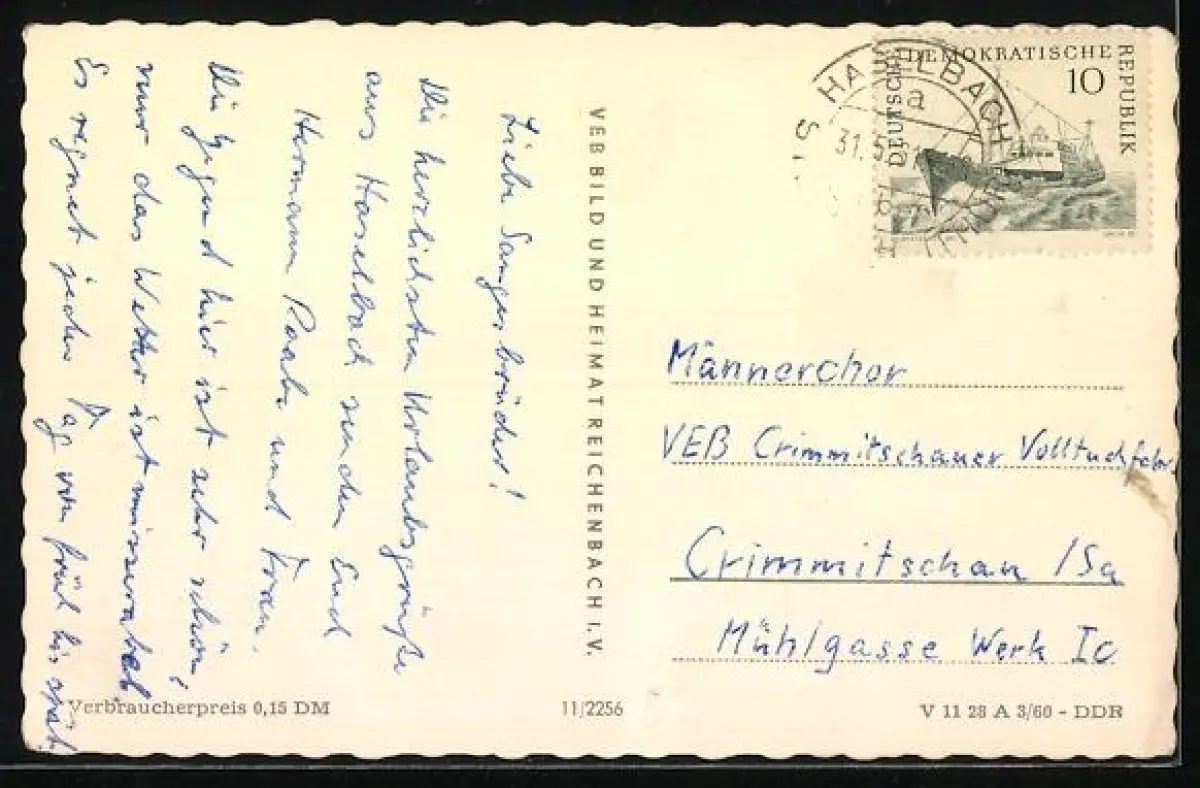 Liebe Sangesbrüder!
Die herzlichsten Urlaubsgrüße
aus Haselbach senden Euch
Hermann Raabe und Frau.
Die Gegend hier ist sehr schön,
nur das Wetter ist miserabel
Es regnet jeden Tag von früh bis spät.
VEB BILD UND HEIMAT REICHENBACH I. V.
DEUTSCHE DEMOKRATISCHE REPUBLIK
10
HASELBACH
a
31.5.61
Männerchor
VEB Crimmitschauer Volltuchfabr.
Crimmitschau /Sa
Mühlgasse Werk Ic
Verbraucherpreis 0,15 DM
11/2256
V 11 28 A 3/60 - DDR